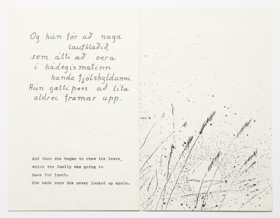 Og hún fór að naga
laufblaðið,
sem átti að vera
í hádegismatinn
handa fjölskyldunni.
Hún gætti þess að líta
aldrei framar upp.
And then she began to chew the leave,
which the family was going to
have for lunch.
She made sure she never looked up again.